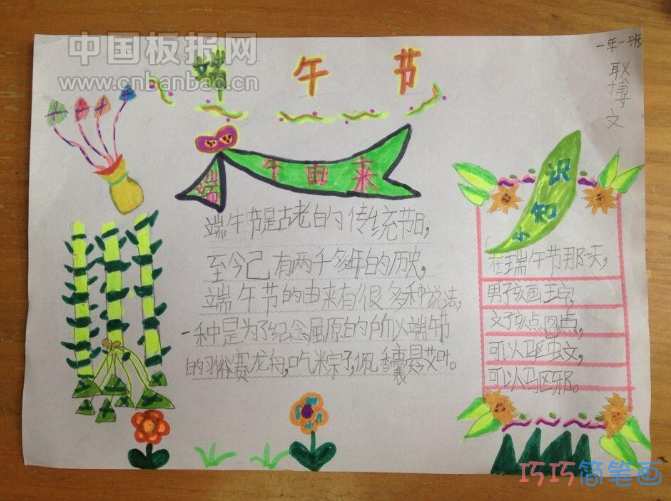 中国板报网
www.cnbanbao.cn
端午节
一年一班
耿博文
端午由来
端午节是古老的传统节日,
至今已有两千多年的历史,
端午节的由来有很多种说法,
一种是为了纪念屈原的所以端午节
的习俗赛龙舟,吃粽子,佩香囊悬艾叶。
小知识
在端午节那天,
男孩画王字,
女孩点圆点,
可以驱蚊,
可以驱邪。
巧巧简笔画